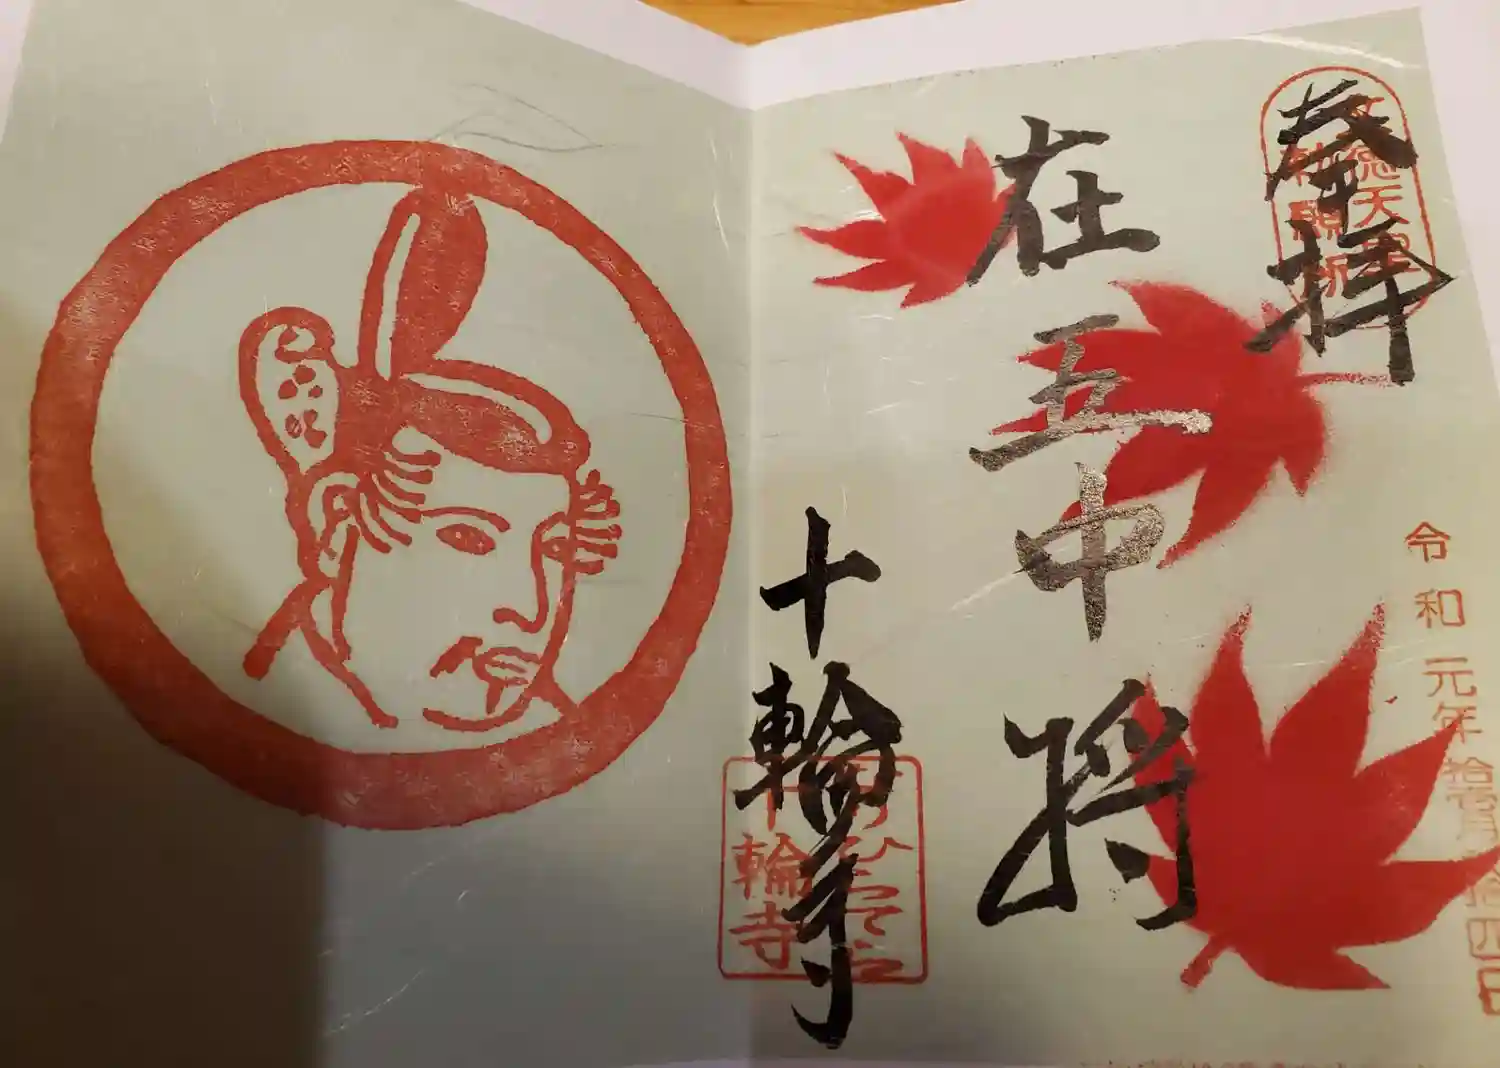 奉拝
文徳天皇
勅願所
令和元年拾壹月拾四日
在五中将
十輪寺
なりひらてら
十輪寺